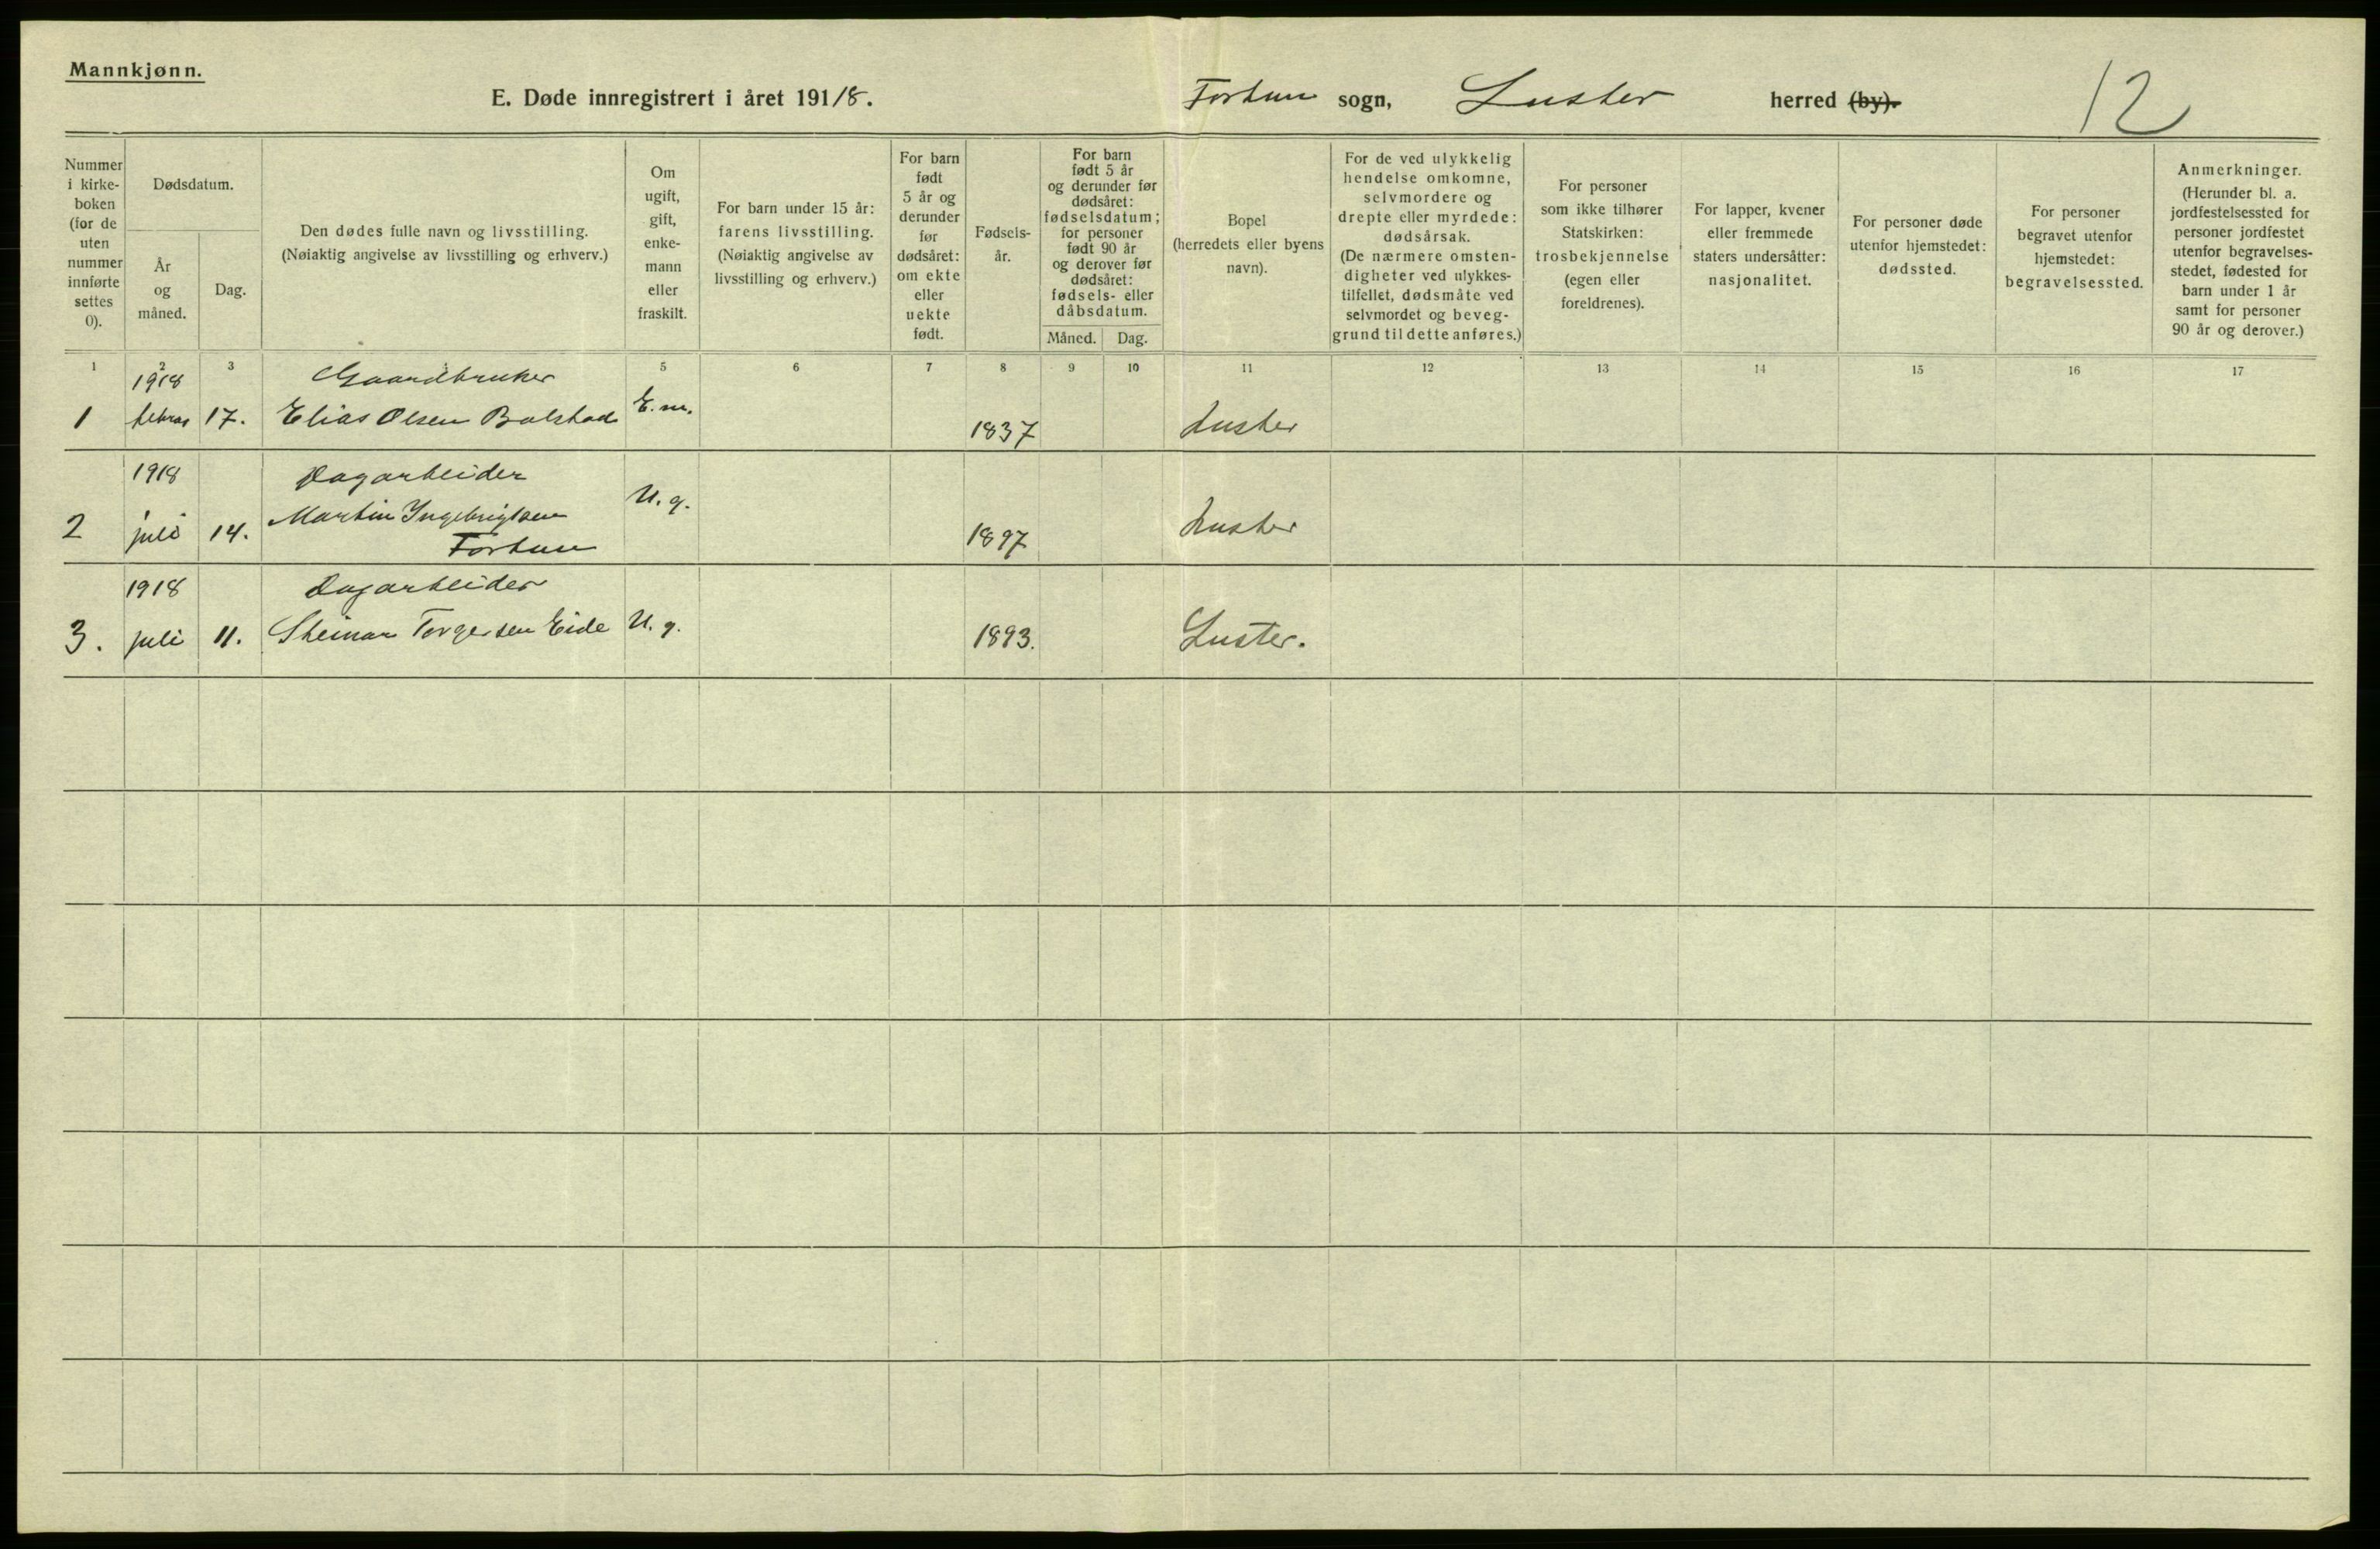 Mannkjønn.
E. Døde innregistrert i året 19118. Fortun sogn, Luster herred (by). 12
Nummer
i kirke-
boken
(for de
uten
nummer
innførte
settes
0).
Dødsdatum.
År
og
måned.
Dag.
Den dødes fulle navn og livsstilling.
(Nøiaktig angivelse av livsstilling og erhverv.)
Om
ugift,
gift,
enke-
mann
eller
fraskilt.
For barn under 15 år:
farens livsstilling.
(Nøiaktig angivelse av
livsstilling og erhverv.)
For barn
født
5 år og
derunder
før
dødsåret:
om ekte
eller
uekte
født.
Fødsels-
år.
For barn
født 5 år
og derunder før
dødsåret:
fødselsdatum;
for personer
født 90 år
og derover før
dødsåret:
fødsels- eller
dåbsdatum.
Måned. Dag.
Bopel
(herredets eller byens
navn).
For de ved ulykkelig
hendelse omkomne,
selvmordere og
drepte eller myrdede:
dødsårsak.
(De nærmere omsten-
digheter ved ulykkes-
tilfellet, dødsmåte ved
selvmordet og beveg-
grund til dette anføres.)
For personer
som ikke tilhører
Statskirken:
trosbekjennelse
(egen eller
foreldrenes).
For lapper, kvener
eller fremmede
staters undersåtter:
nasjonalitet.
For personer døde
utenfor hjemstedet:
dødssted.
For personer
begravet utenfor
hjemstedet:
begravelsessted.
Anmerkninger.
(Herunder bl. a.
jordfestelsessted for
personer jordfestet
utenfor begravelses-
stedet, fødested for
barn under 1 år
samt for personer
90 år og derover.)
1 2 3 5 6 7 8 9 10 11 12 13 14 15 16 17
1918 Gaardbruker
1 februar 17. Elias Olsen Bolstad E.m. 1837 Luster
1918 Dagarbeider
2 juli 14. Martin Ingebrigtsen U.g. 1897 Luster
Fortun
1918 Dagarbeider
3. juli 11. Steinar Torgersen Eide U.g. 1893. Luster.